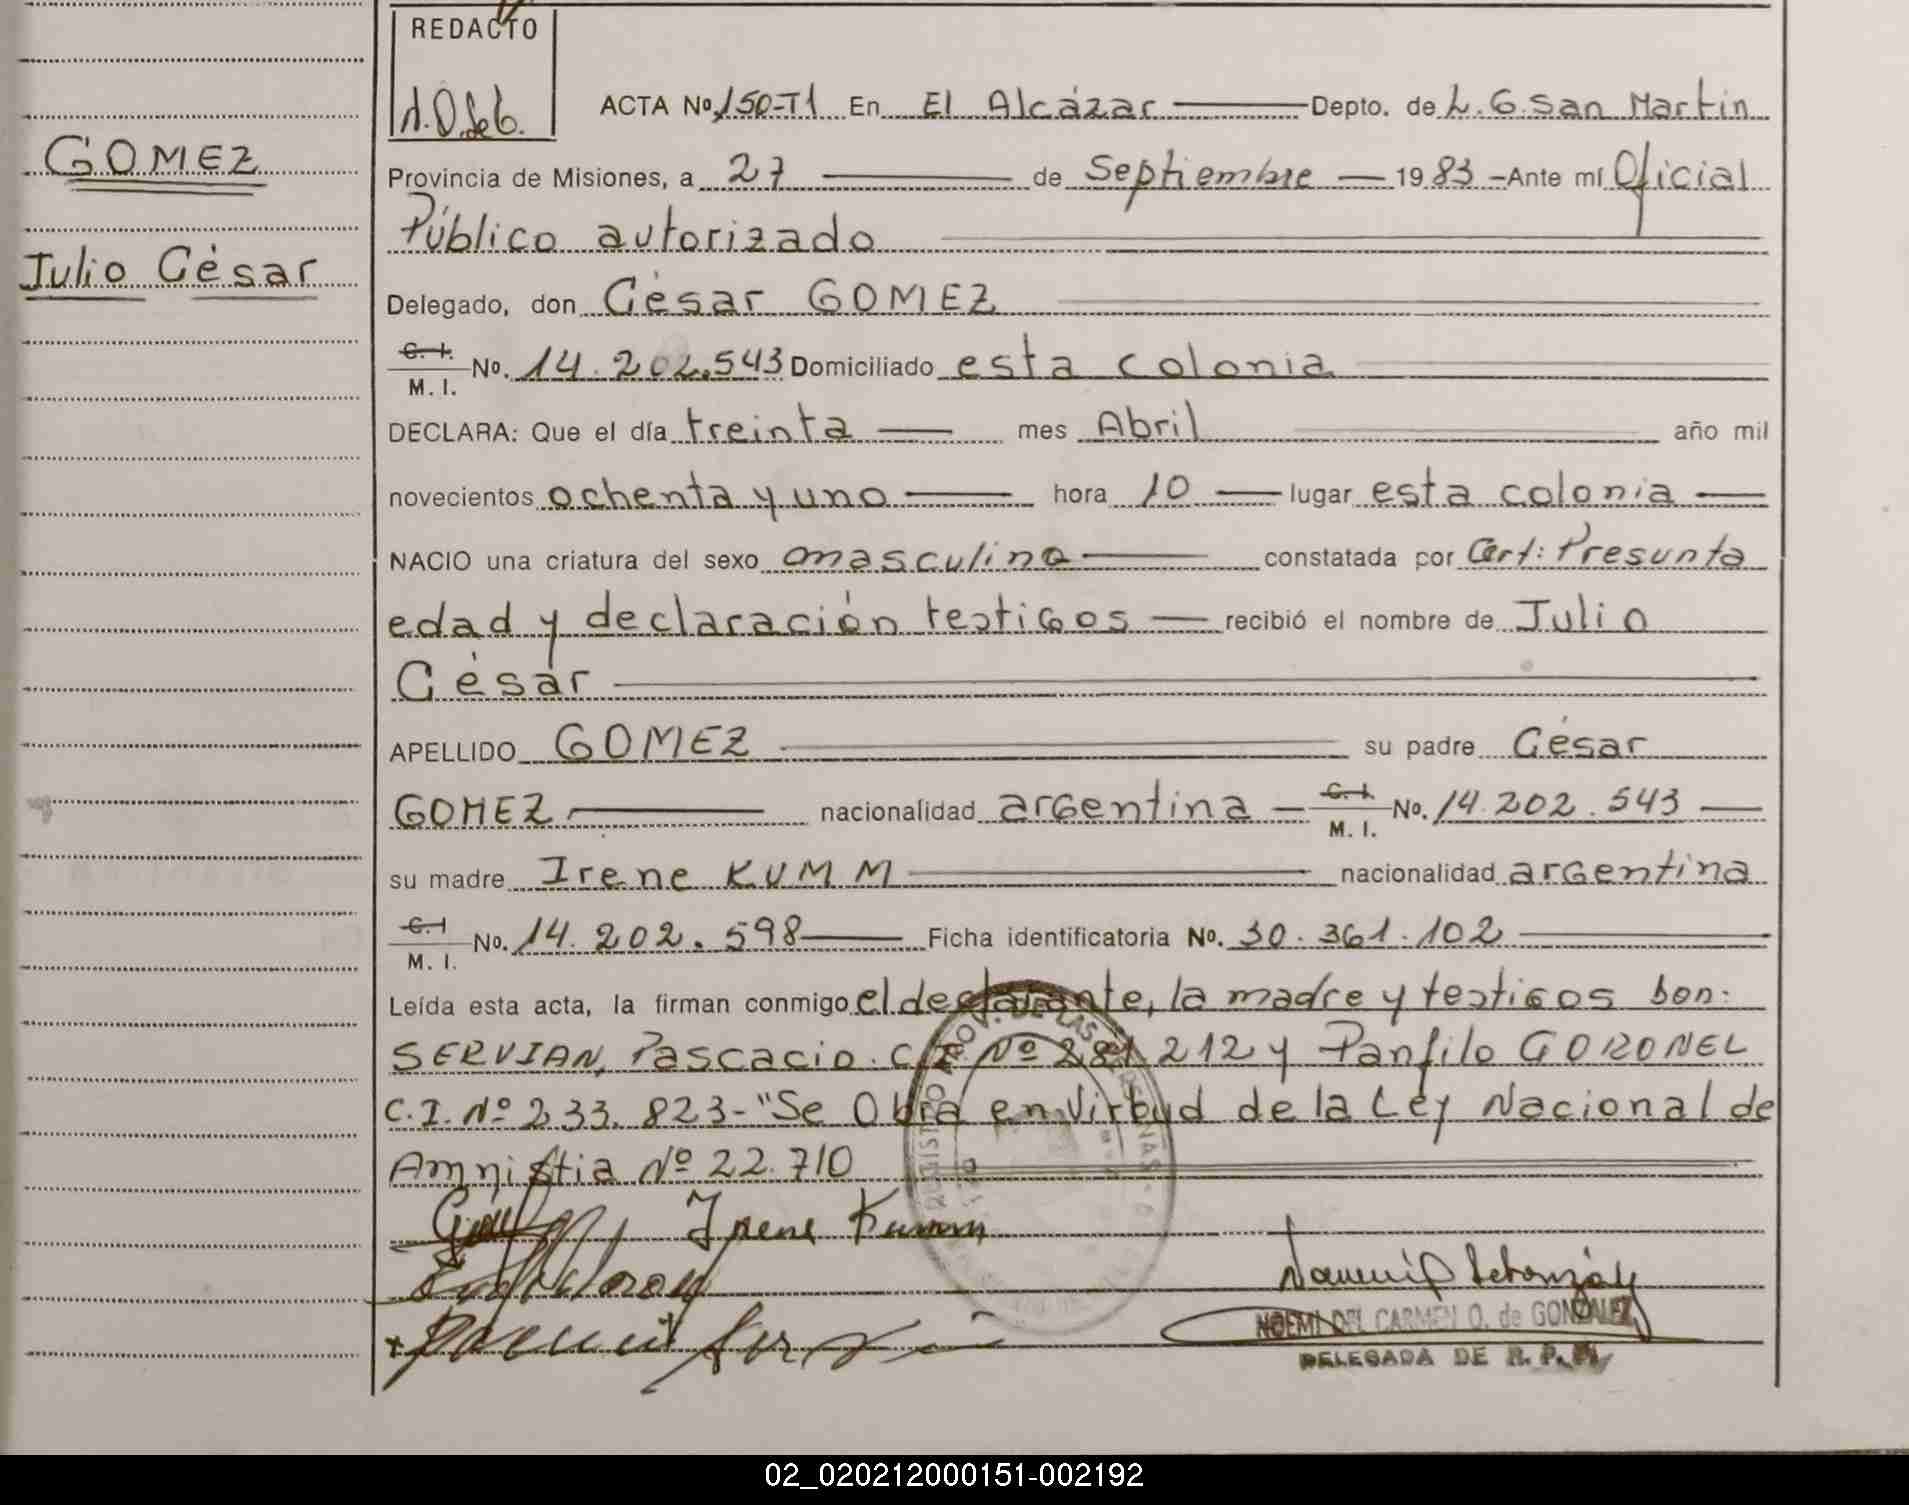 REDACTO
GOMEZ
Julio César
ACTA No 150-T1 En El Alcázar Depto. de L. G. San Martin
Provincia de Misiones, a 27 de Septiembre 1983 - Ante mí Oficial
Público autorizado
Delegado, don César GOMEZ
C. I. M. I. No. 14.202.543 Domiciliado esta colonia
DECLARA: Que el día treinta mes Abril año mil
novecientos ochenta y uno hora 10 lugar esta colonia
NACIO una criatura del sexo masculino constatada por Cert: Presunta
edad y declaración testigos recibió el nombre de Julio
César
APELLIDO GOMEZ su padre César
GOMEZ nacionalidad argentina C. I. M. I. No. 14.202.543
su madre Irene KUMM nacionalidad argentina
C. I M. I. No. 14.202.598 Ficha identificatoria No. 30.361.102
Leída esta acta, la firman conmigo el declarante, la madre y testigos son:
SERVIAN, Pascacio. C.I. Nº 281.212 y Panfilo CORONEL
C.I. Nº 233.823 - "Se Obra en Virtud de la Ley Nacional de
Amnistia Nº 22.710
Irene Kumm
NOEMI DEL CARMEN O. de GONZALEZ
DELEGADA DE R. P.
02_020212000151-002192